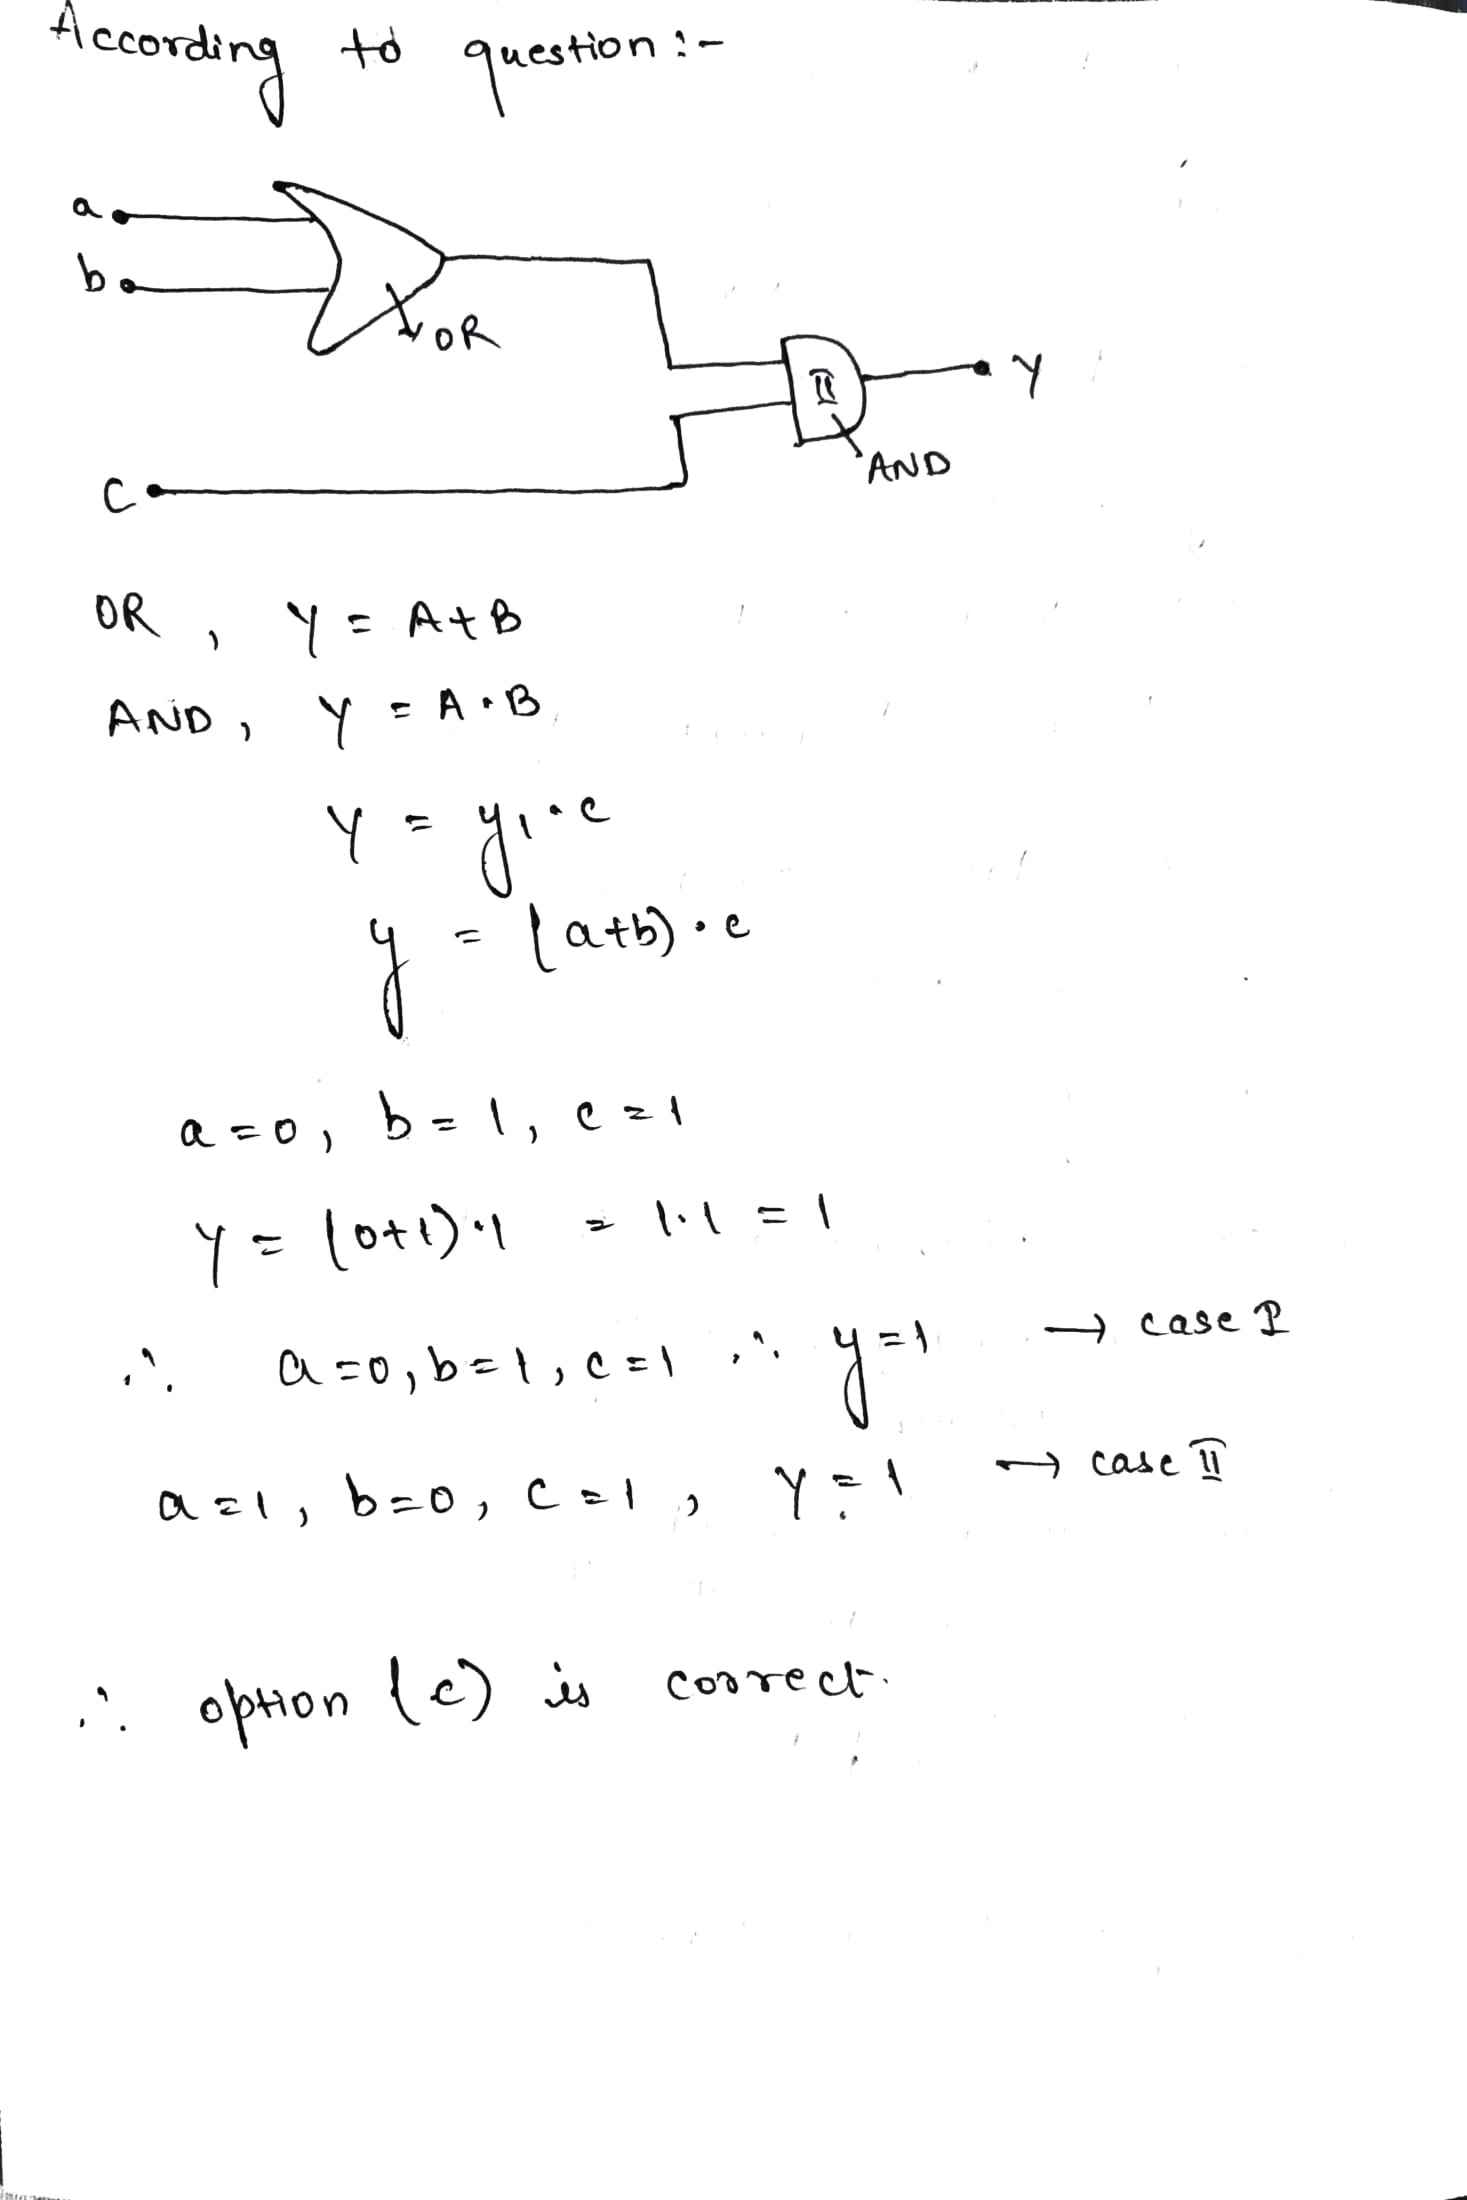 According to question :-
a
b
OR
II
Y
AND
C
OR , Y = A+B
AND , Y = A·B
Y = y1·c
y = (a+b)·c
a=0, b=1, c=1
Y = (0+1)·1 = 1·1 = 1
∴ a=0, b=1, c=1 ∴ y=1 → case I
a=1, b=0, c=1, Y=1 → case II
∴ option (c) is correct.